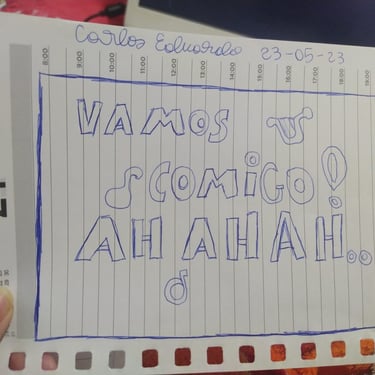 Carlos Eduardo 23-05-23
8:00 9:00 10:00 11:00 12:00 13:00 14:00 15:00 16:00 17:00 18:00 19:00
VAMOS
COMIGO!
AH AH AH!..